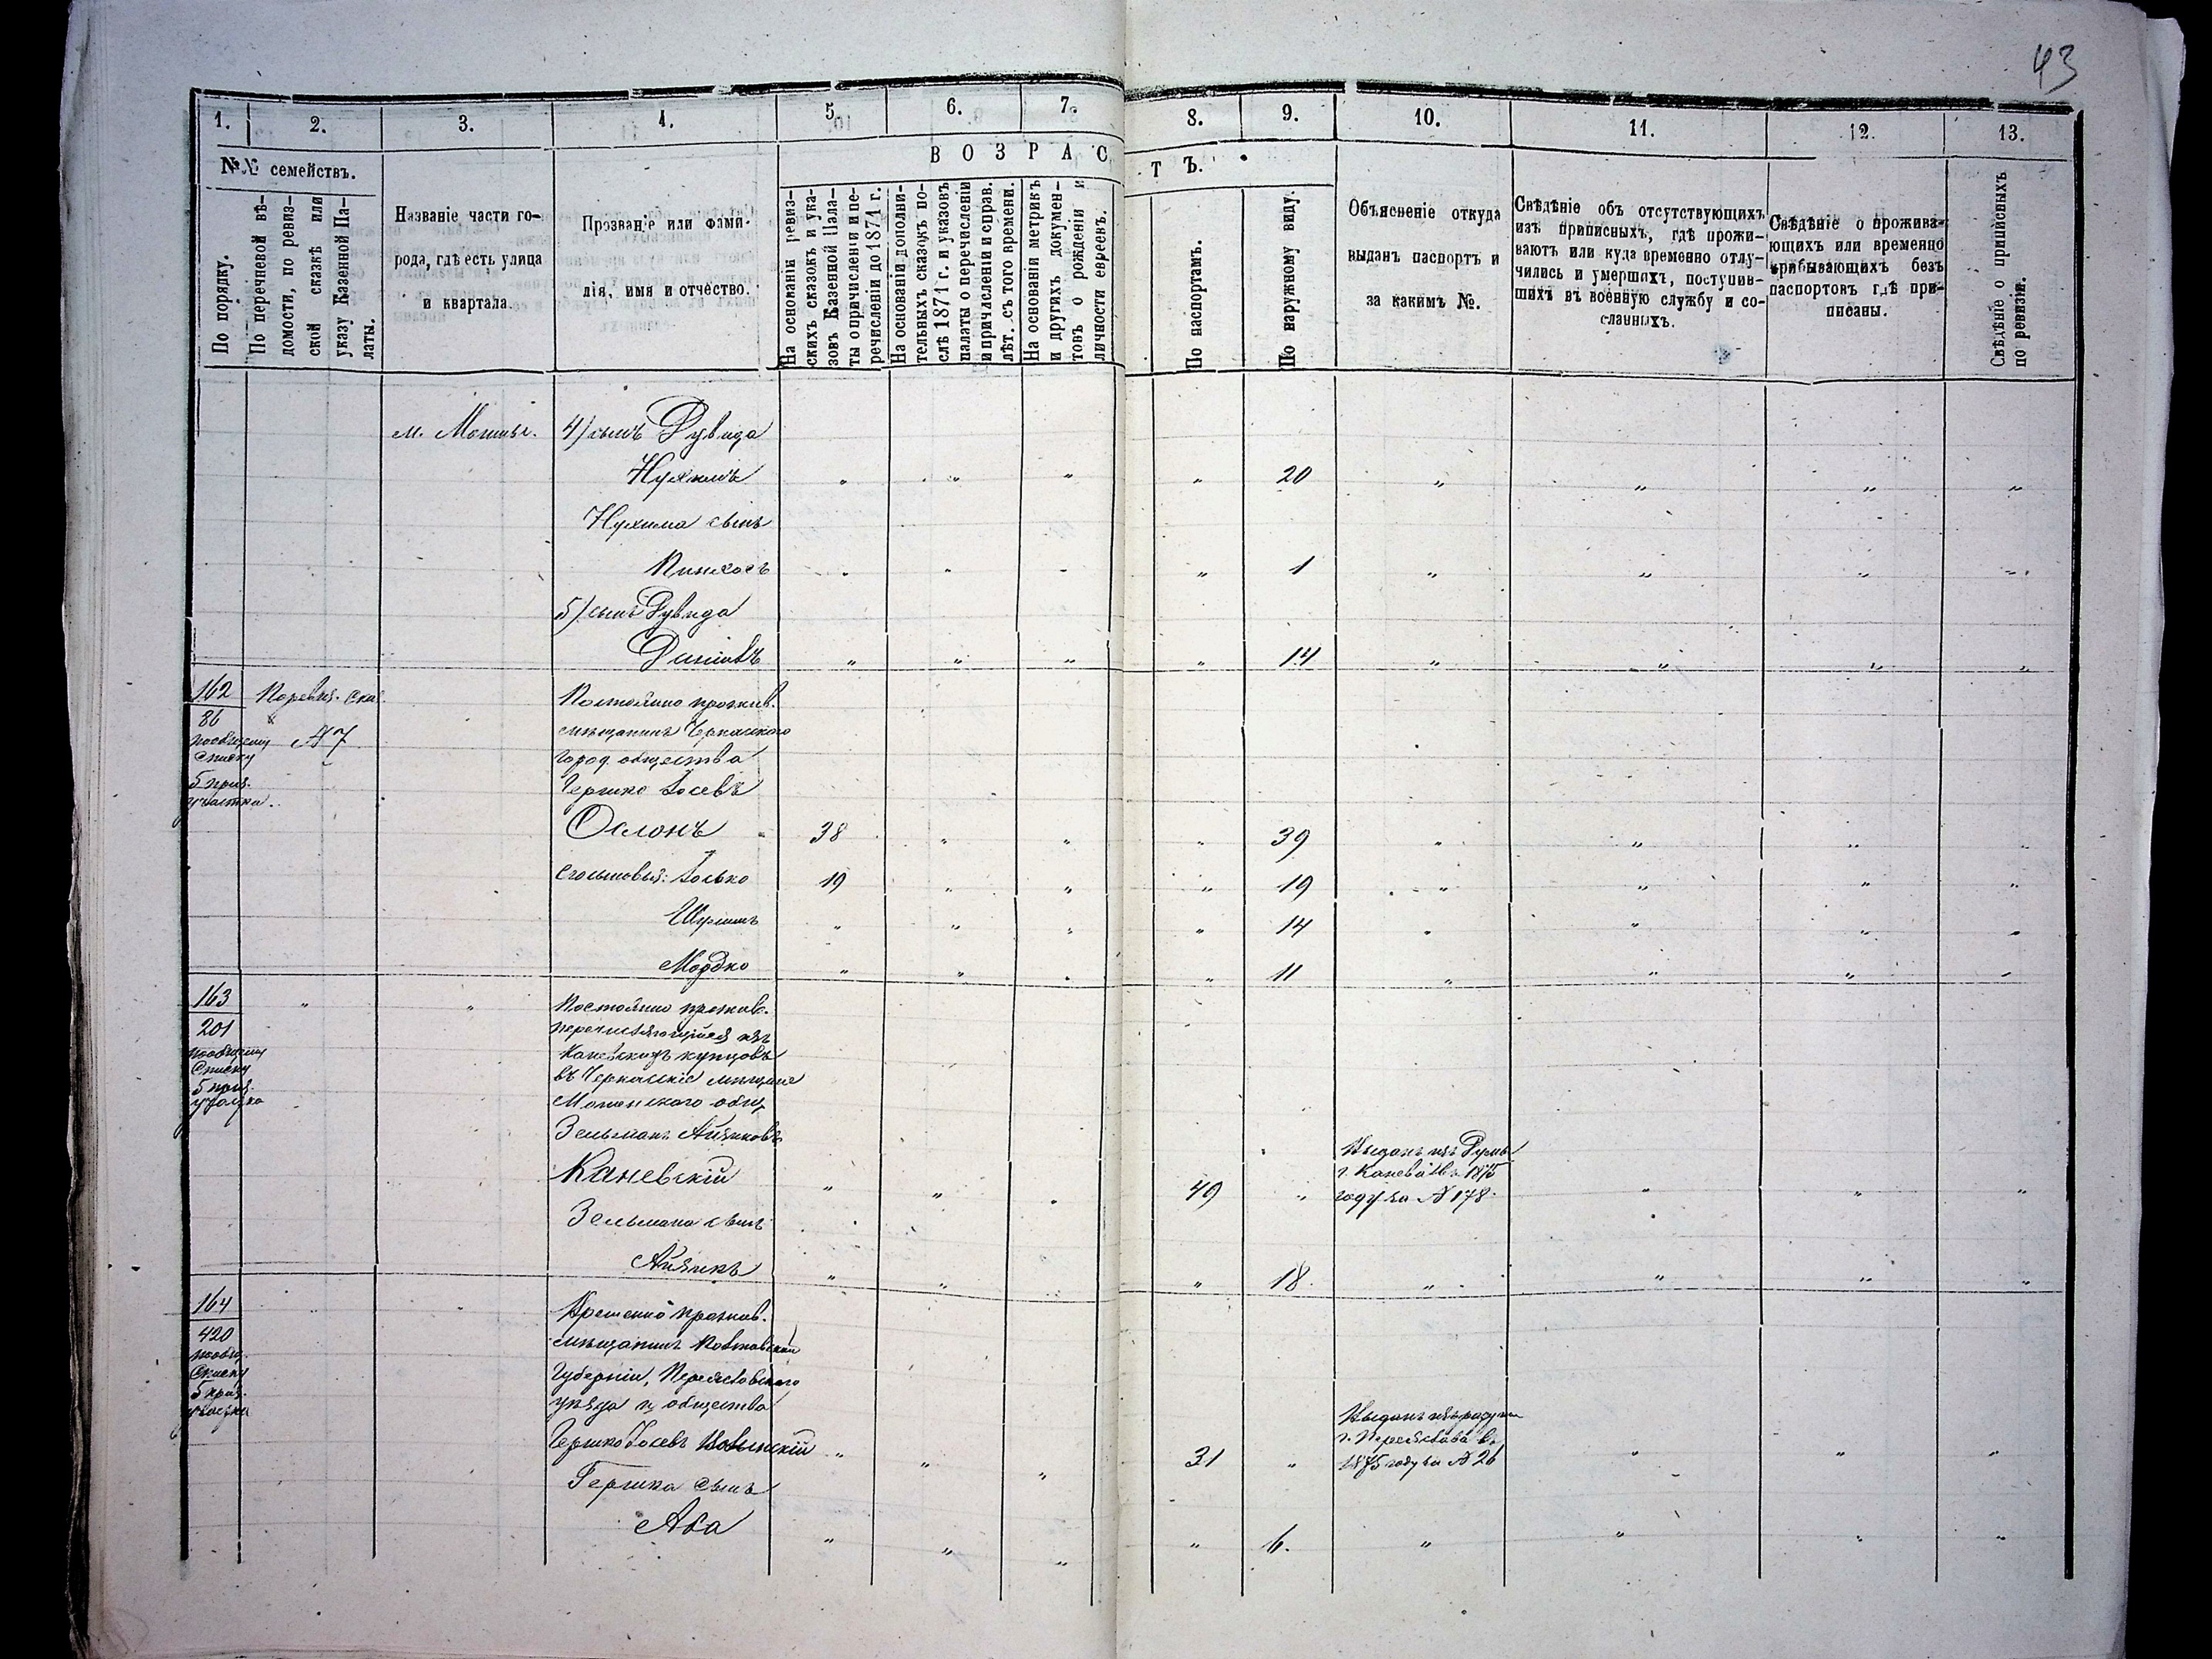 43
1. 2. 3. 4. 5. 6. 7. 8. 9. 10. 11. 12. 13.
№№ семействъ.
По порядку.
По перечневой вѣ-
домости, по ревиз-
ской сказкѣ или
указу Казенной Па-
латы.
Названіе части го-
рода, гдѣ есть улица
и квартала.
Прозваніе или фами-
лія, имя и отчество.
ВОЗРАСТЪ.
На основаніи ревиз-
скихъ сказокъ и ука-
зовъ Казенной Пала-
ты о причисленіи и пе-
речисленіи до 1871 г.
На основаніи дополни-
тельныхъ сказокъ по-
слѣ 1871 г. и указовъ
палаты о перечисленіи
и причисленіи и справ.
лѣт. съ того времени.
На основаніи метрикъ
и другихъ докумен-
товъ о рожденіи и
личности евреевъ.
По паспортамъ.
По наружному виду.
Объясненіе откуда
выданъ паспортъ и
за какимъ №.
Свѣдѣніе объ отсутствующихъ
изъ приписныхъ, гдѣ прожи-
ваютъ или куда временно отлу-
чились и умершихъ, поступив-
шихъ въ военную службу и со-
сланныхъ.
Свѣдѣніе о прожива-
ющихъ или временно
прибывающихъ безъ
паспортовъ гдѣ при-
писаны.
Свѣдѣніе о приписныхъ
по ревизіи.
м. Мошны. 4) сынъ Рувида
Нухимъ " " " " 20 " " " "
Нухима сынъ
Пинхасъ " " " " 1 " " " "
5) сынъ Рувида
" " " " 14 " " " "
162 По ревиз. ска.
86 № 7
по общему
списку
5 приз.
участка.
Постоянно прожив.
мѣщанинъ Черкаскаго
город. общества
Гершко Іосевъ
Ослонъ 38 " " " 39 " " " "
его сыновья: Іосько 19 " " " 19 " " " "
Шулимъ " " " " 14 " " " "
Мордко " " " " 11 " " " "
163 " "
201
по общему
списку
5 приз.
участка
Постоянно прожив.
перечисляющійся изъ
Каневскихъ купцовъ
въ Черкаскіе мѣщане
Мошенскаго общ.
Зельманъ Айзиковъ
Каневскій " " " 49 "
Выданъ изъ Думы
г. Канева въ 1875
году за № 178. " " "
Зельмана сынъ
Айзикъ " " " 18. " " " "
164 " "
420
по общ.
списку
5 приз.
участка
Временно прожив.
мѣщанинъ Полтавской
Губерніи, Переяславскаго
уѣзда и общества
Гершко Іосевъ " " " 31 "
г. Переяслава въ
1875 году за № 26 " " "
Гершка сынъ
Аба " " " " 6. " " " "